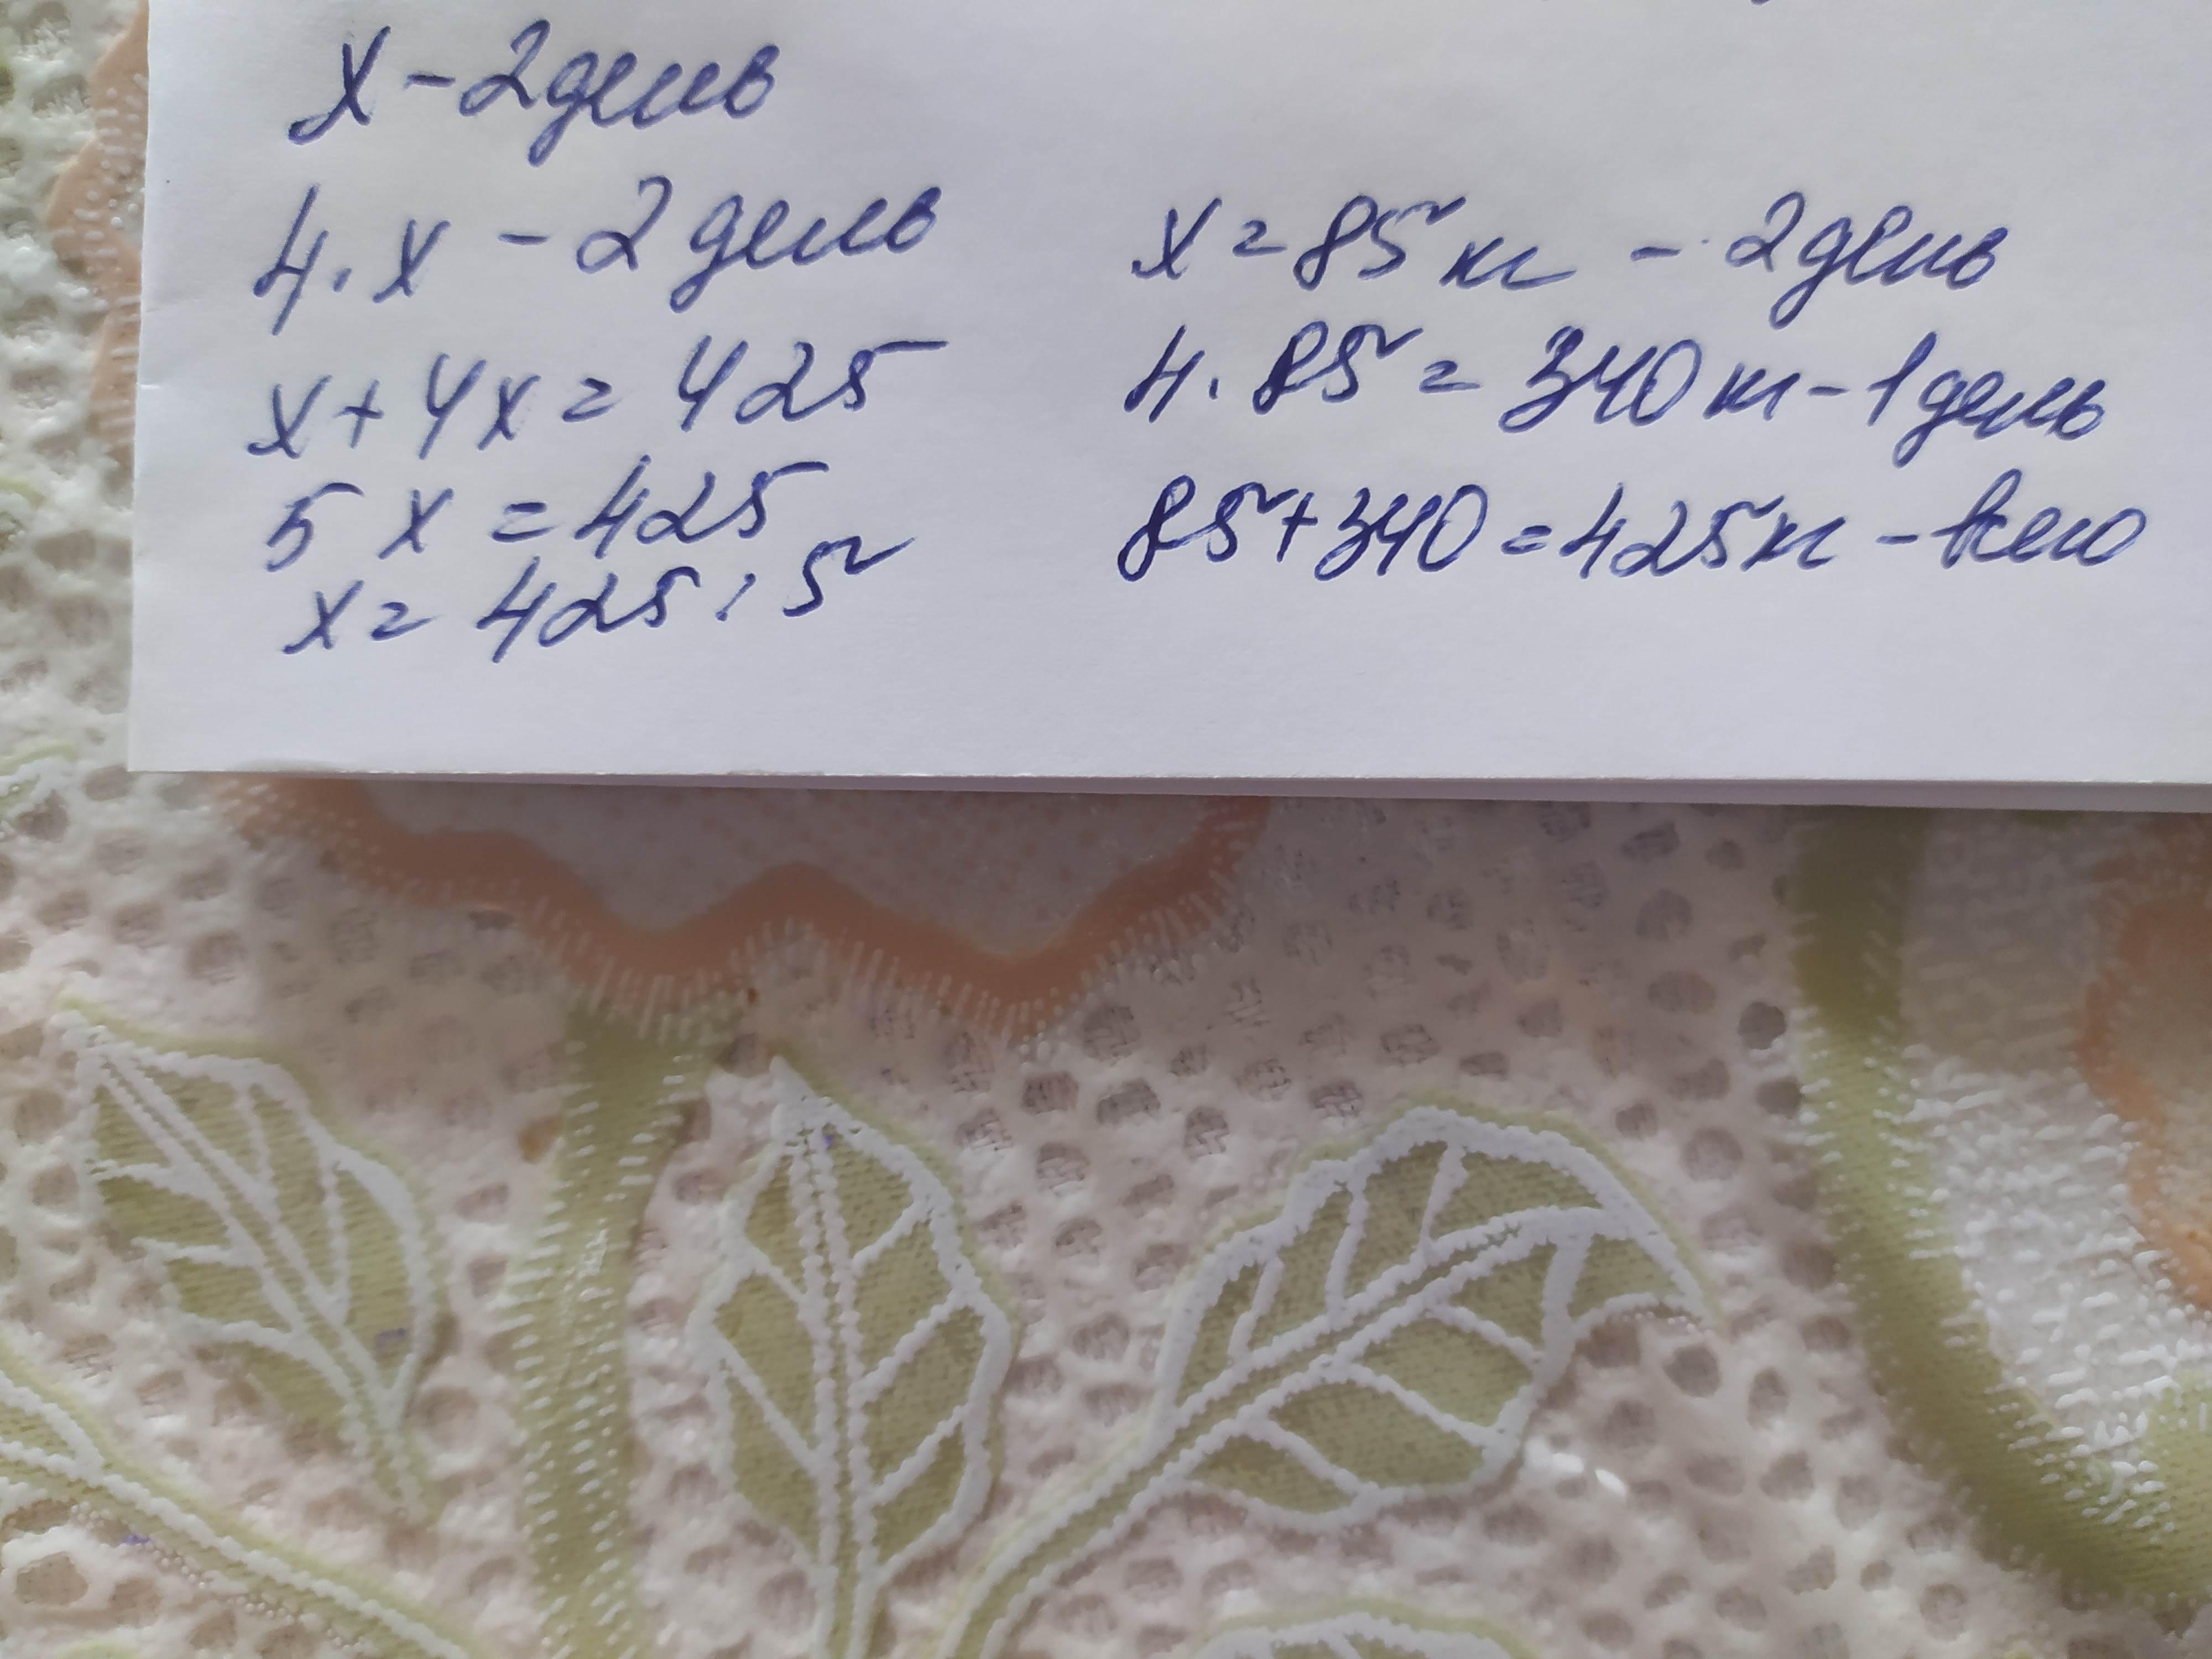 x - 2 день
4 · x - 2 день
x + 4x = 425
5 x = 425
x = 425 : 5
x = 85 кг - 2 день
4 · 85 = 340 кг - 1 день
85 + 340 = 425 кг - всего